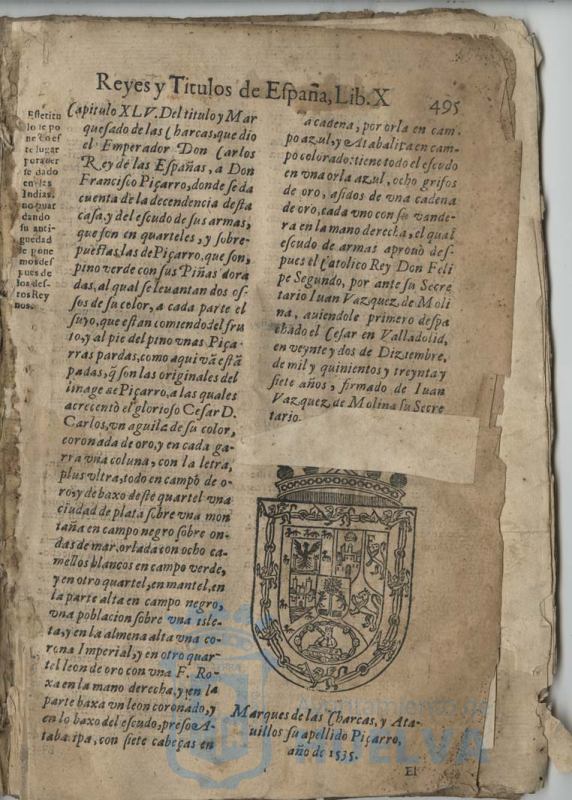 Reyes y Titulos de España, Lib. X
495
Esteticu
lo se po
ne en es
te lugar
por aver
se dado
en las
Indias.
no guar
dando
su anti-
guedad
se pone
mos des
pues de
los des-
tos Rey
nos.
Capitulo XLV. Del titulo y Mar
quesado de las Charcas, que dio
el Emperador Don Carlos
Rey de las Españas, a Don
Francisco Piçarro, donde se da
cuenta de la decendencia desta
casa, y del escudo de sus armas,
que son en quarteles, y sobre-
puestas, las de Piçarro, que son,
pino verde con sus Piñas dora
das, al qual se leuantan dos os-
sos de su color, a cada parte el
suyo, que estan comiendo el fru
to, y al pie del pino vnas Piça-
rras pardas, como aqui vã estã
padas, q̃ son las originales del
linage de Piçarro, a las quales
acrecentò el glorioso Cesar D.
Carlos, vn aguila de su color,
coronada de oro, y en cada ga-
rra vna coluna, con la letra,
plus vltra, todo en campo de o-
ro, y debaxo deste quartel vna
ciudad de plata sobre vna mon
taña en campo negro sobre on-
das de mar, orlada con ocho ca-
mellos blancos en campo verde,
y en otro quartel, en mantel, en
la parte alta en campo negro,
vna poblacion sobre vna isle-
ta, y en la almena alta vna co-
rona Imperial, y en otro quar-
tel leon de oro con vna F. Ro-
xa en la mano derecha, y en la
parte baxa vn leon coronado, y
en lo baxo del escudo, preso A-
tabaripa, con siete cabeças en
a cadena, por orla en cam-
po azul, y Atabalita en cam-
po colorado: tiene todo el escudo
en vna orla azul, ocho grifos
de oro, asidos de vna cadena
de oro, cada vno con su vande-
ra en la mano derecha, el qual
escudo de armas aprouò des-
pues el Catolico Rey Don Feli
pe Segundo, por ante su Secre
tario Iuan Vazquez de Moli
na, auiendole primero despa
chado el Cesar en Valladolid,
en veynte y dos de Diziembre,
de mil y quinientos y treynta y
siete años, firmado de Iuan
Vazquez de Molina su Secre
tario.
Marques de las Charcas, y Ata-
uillos su apellido Piçarro,
año de 1535.
El
Ayuntamiento de
HUELVA